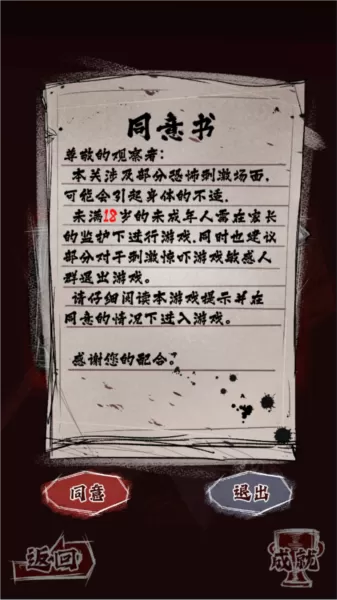 同意书
尊敬的观察者：
本关涉及部分恐怖刺激场面，
可能会引起身体的不适.
未满18岁的未成年人需在家长
的监护下进行游戏.同时也建议
部分对于刺激惊吓游戏敏感人
群退出游戏。
请仔细阅读本游戏提示并在
同意的情况下进入游戏。
感谢您的配合。
同意
退出
返回
成就